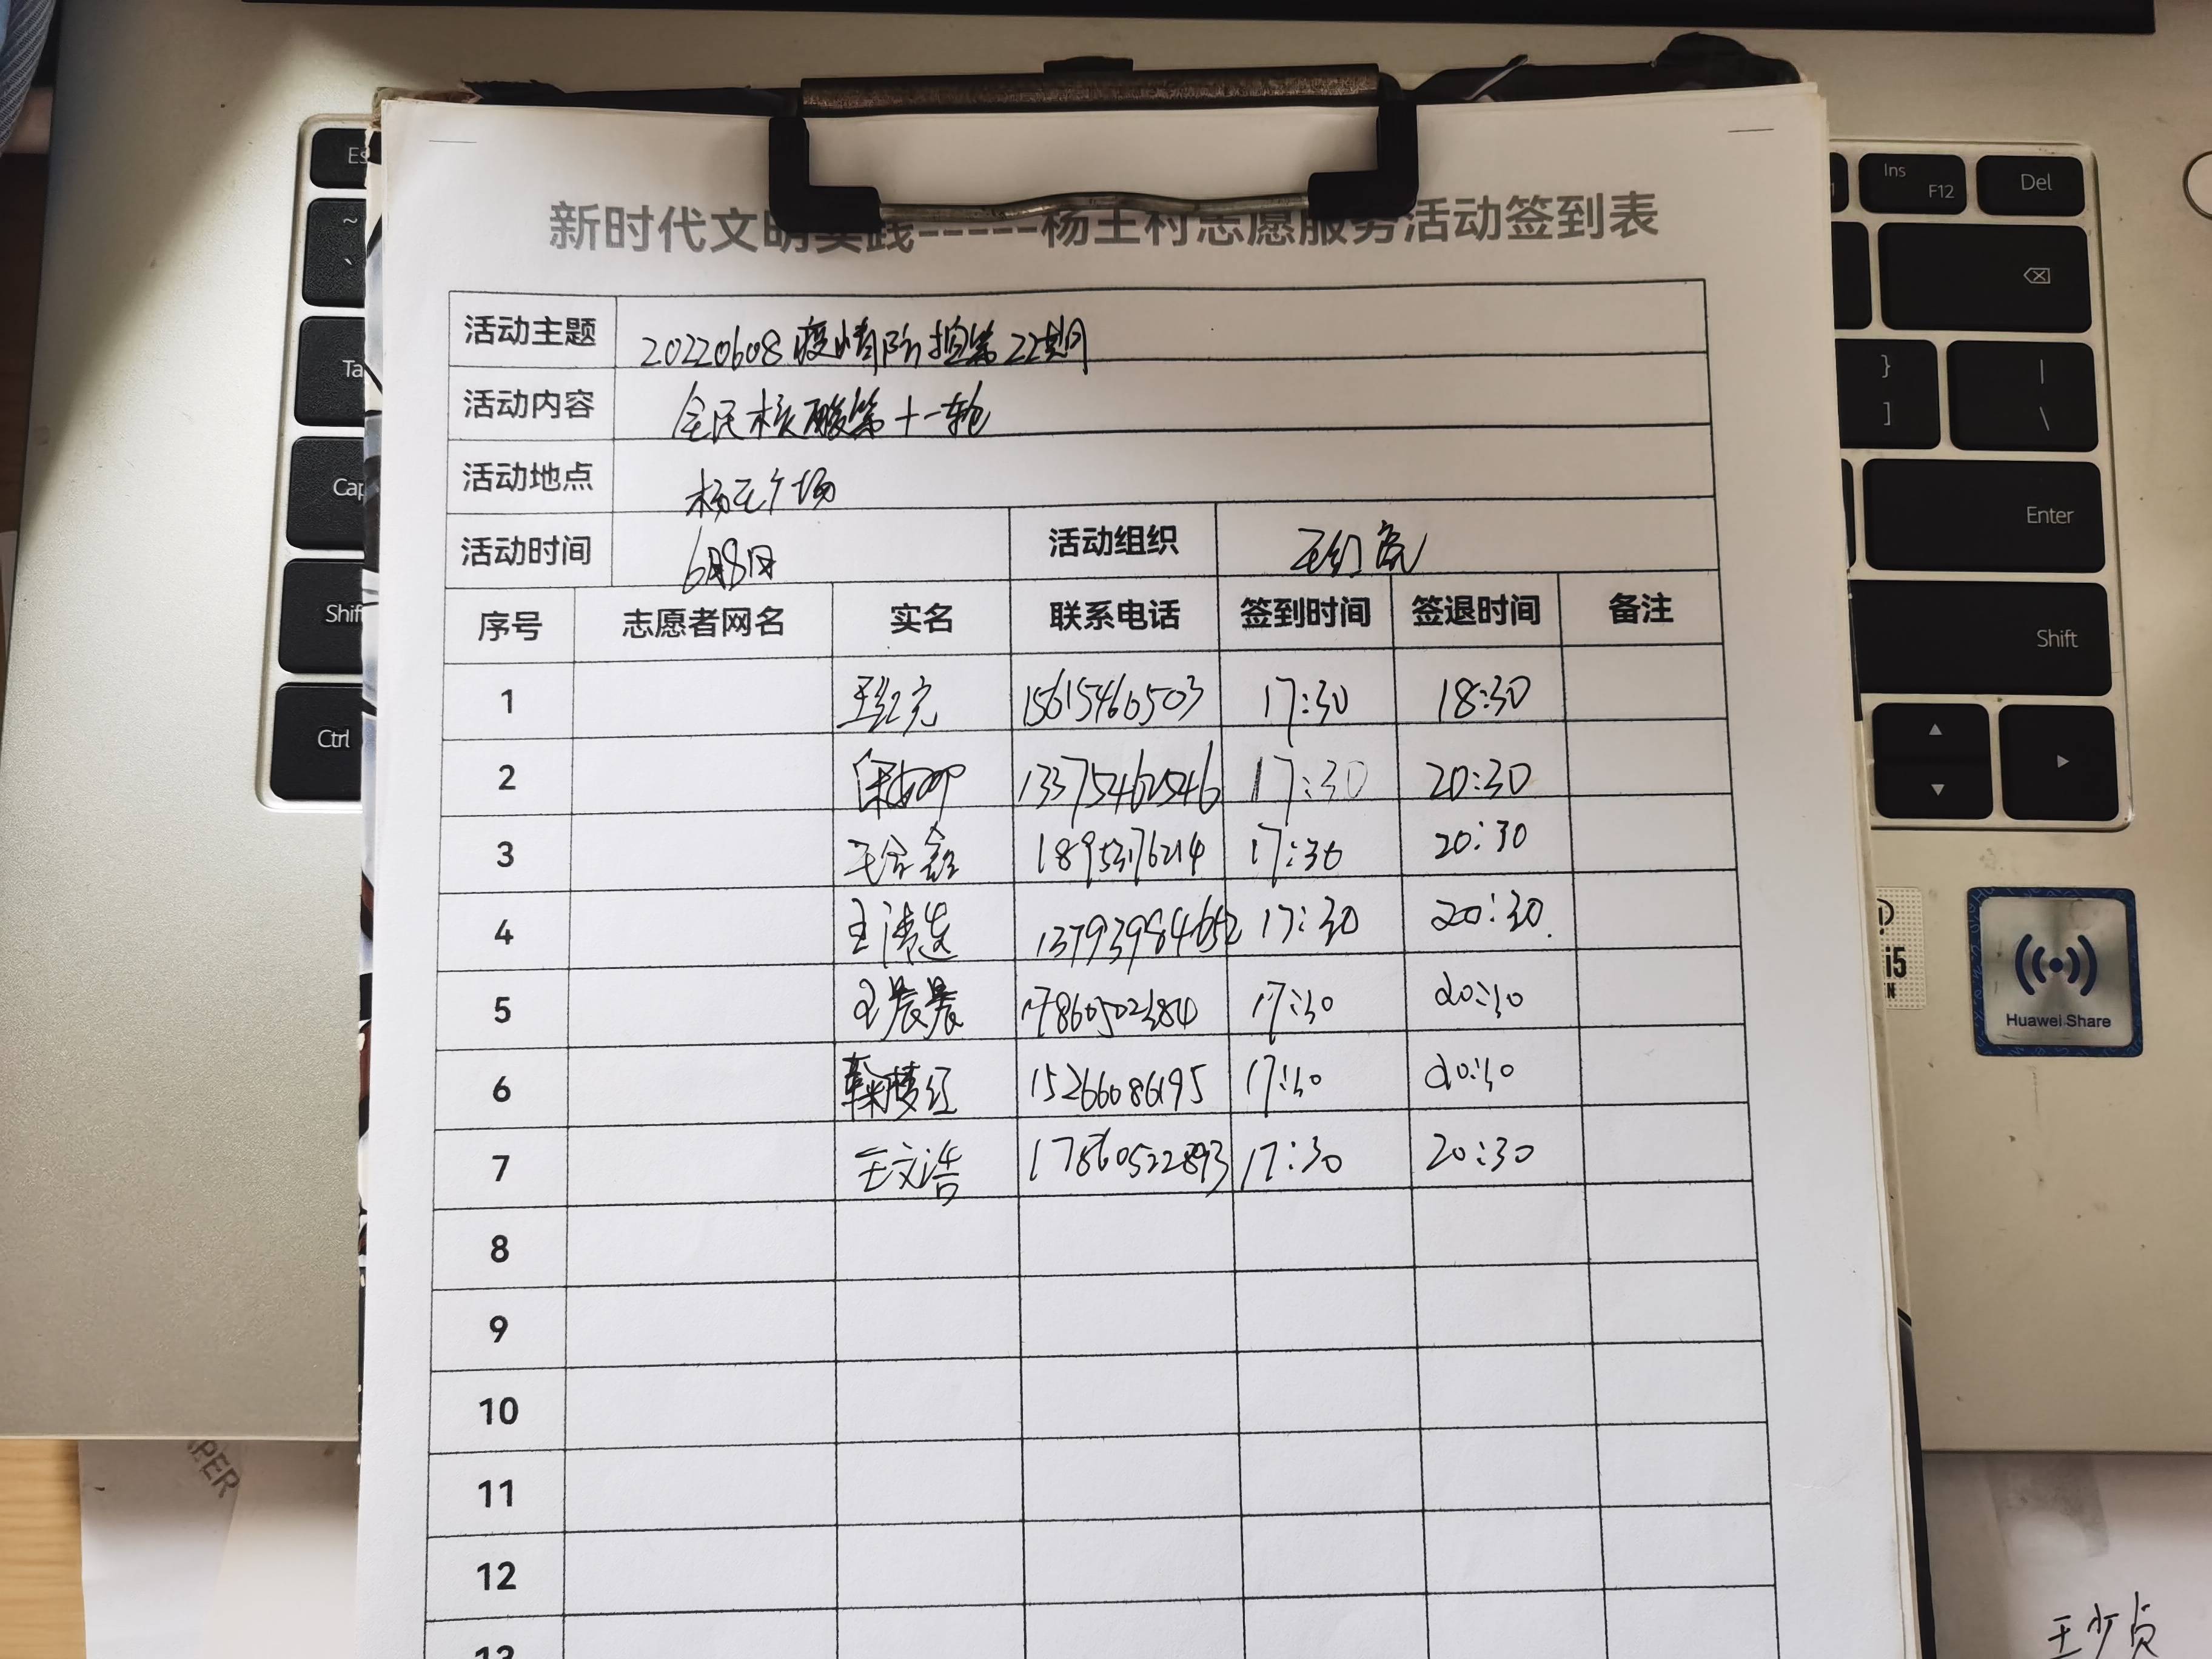 新时代文明实践-----杨王村志愿服务活动签到表
活动主题 20220608疫情防控第22期
活动内容 全民核酸第十一轮
活动地点 杨王广场
活动时间 6月8日 活动组织 王红亮
序号 志愿者网名 实名 联系电话 签到时间 签退时间 备注
1 王红亮 15615466503 17:30 18:30
2 13375462546 17:30 20:30
3 18953176214 17:30 20:30
4 王清莲 13793984652 17:30 20:30.
5 王晨晨 17:30 20:30
6 15266086195 17:30 20:30
7 王文浩 17860522893 17:30 20:30
8
9
10
11
12
13
Ctrl
Ins F12
Del
Enter
Shift
} ]
| \
i5
Huawei Share
PER
王少贞